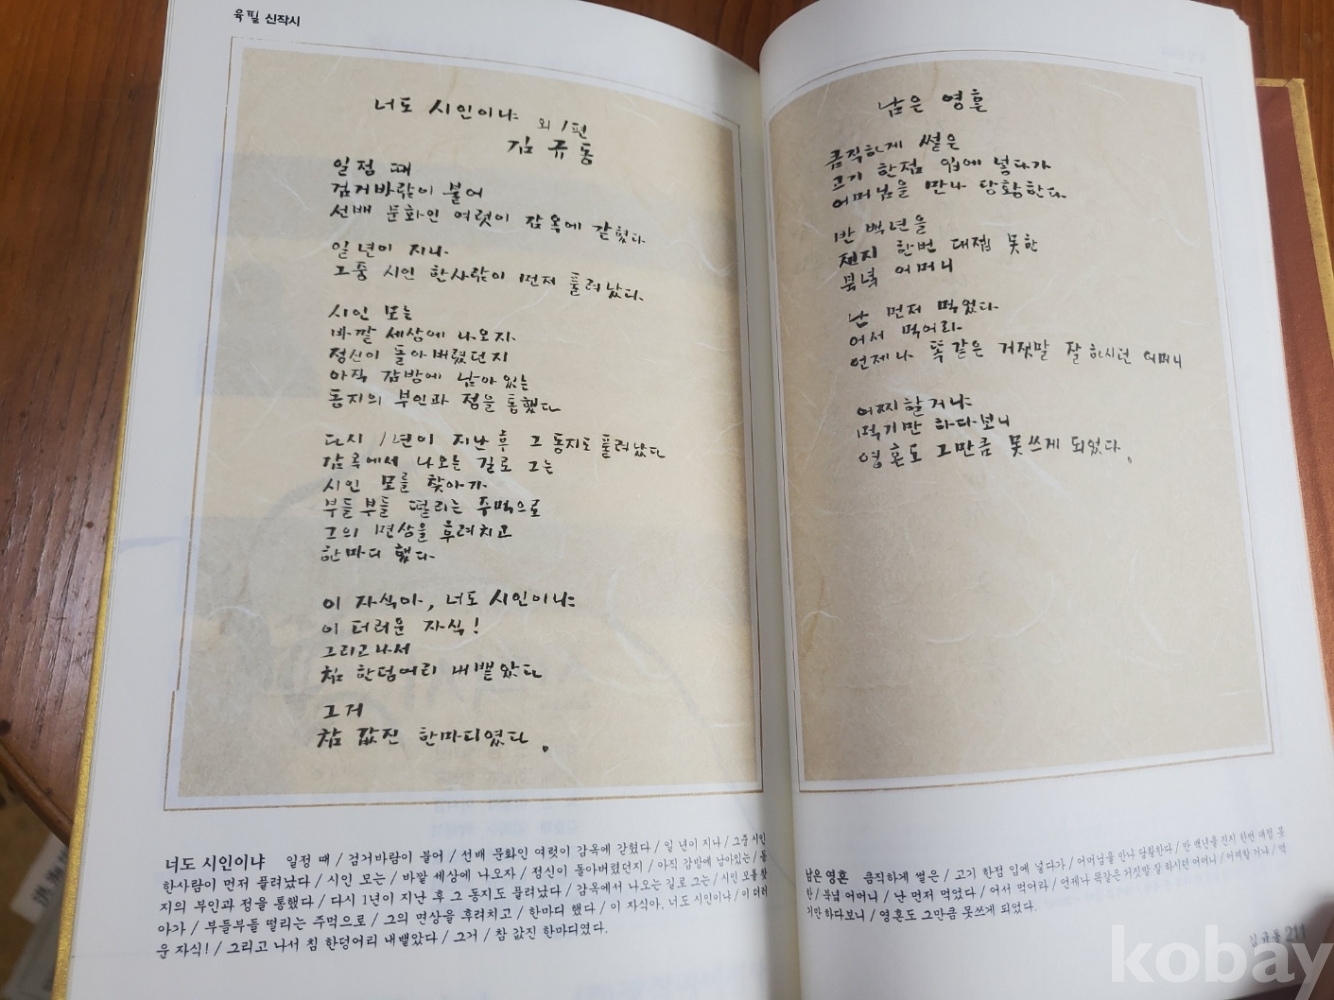 육필 신작시
너도 시인이냐 외 1편
김규동
일정 때
검거바람이 불어
선배 문화인 여럿이 감옥에 갇혔다
일 년이 지나
그중 시인 한사람이 먼저 풀려났다.
시인 모는
바깥 세상에 나오자
정신이 돌아버렸던지
아직 감방에 남아있는
동지의 부인과 정을 통했다
다시 1년이 지난 후 그 동지도 풀려났다
감옥에서 나오는 길로 그는
시인 모를 찾아가
부들부들 떨리는 주먹으로
그의 면상을 후려치고
한마디 했다.
이 자식아, 너도 시인이냐
이 더러운 자식!
그리고 나서
침 한덩어리 내뱉았다
그거
참 값진 한마디였다.
너도 시인이냐 일정 때 / 검거바람이 불어 / 선배 문화인 여럿이 감옥에 갇혔다 / 일 년이 지나 / 그중 시인
한사람이 먼저 풀려났다 / 시인 모는 / 바깥 세상에 나오자 / 정신이 돌아버렸던지 / 아직 감방에 남아있는 / 동
지의 부인과 정을 통했다 / 다시 1년이 지난 후 그 동지도 풀려났다 / 감옥에서 나오는 길로 그는 / 시인 모를 찾
아가 / 부들부들 떨리는 주먹으로 / 그의 면상을 후려치고 / 한마디 했다 / 이 자식아, 너도 시인이냐 / 이 더러
운 자식! / 그리고 나서 침 한덩어리 내뱉았다 / 그거 / 참 값진 한마디였다.
남은 영혼
큼직하게 썰은
고기 한점 입에 넣다가
어머님을 만나 당황한다.
반 백년을
진지 한번 대접 못한
북녘 어머니
난 먼저 먹었다.
어서 먹어라
언제나 똑같은 거짓말 잘 하시던 어머니
어찌할거나
먹기만 하다보니
영혼도 그만큼 못쓰게 되었다.
남은 영혼 큼직하게 썰은 / 고기 한점 입에 넣다가 / 어머님을 만나 당황한다 / 반 백년을 진지 한번 대접 못
한 / 북녘 어머니 / 난 먼저 먹었다 / 어서 먹어라 / 언제나 똑같은 거짓말 잘 하시던 어머니 / 어찌할 거나 / 먹
기만 하다보니 / 영혼도 그만큼 못쓰게 되었다.
김규동 211
kobay